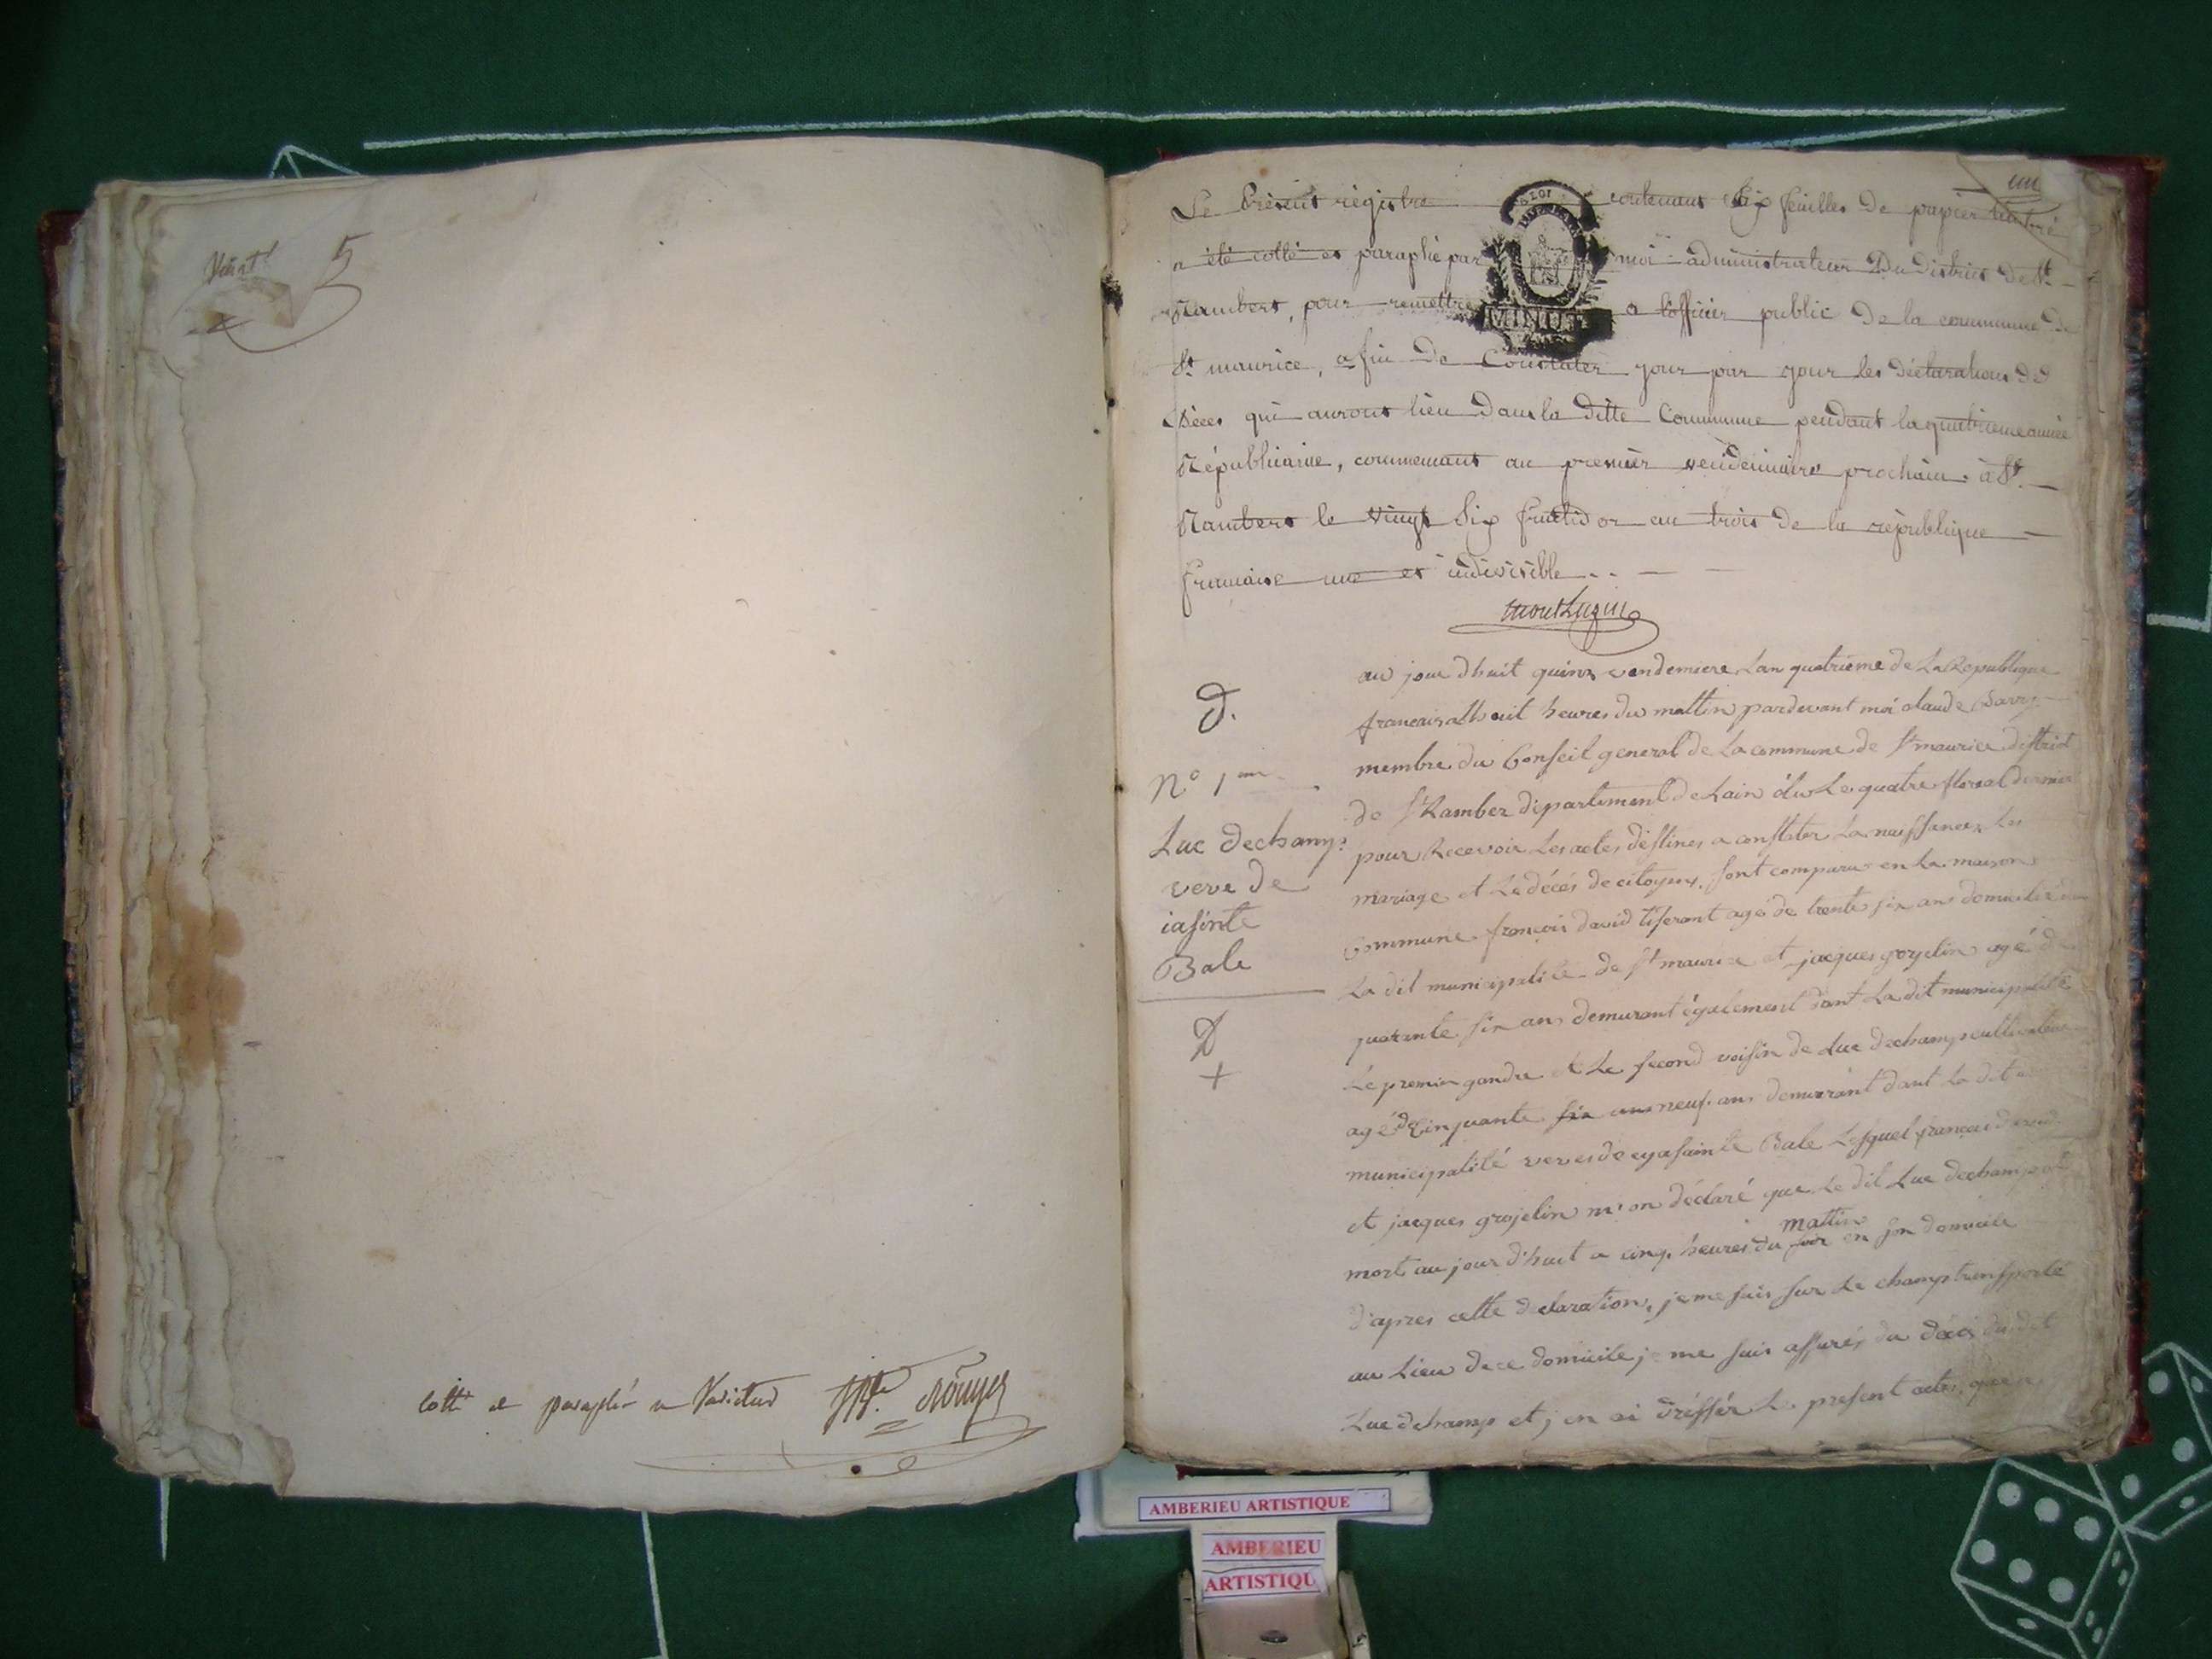 5
cotté et paraphé ne Varietur
un
Le Présent régistre contenant Six feuilles de papier timbré
a été cotté et paraphé par moi administrateur Du district de St.
Rambert, pour remettre a l'officier public De la commune de
St. maurice, afin De Constater jour par jour les déclarations de
Déces qui auront lieu Dans la ditte Commune pendant la quatrieme année
Républicaine, commencant au premier vendemiaire prochain. à St.
Rambert le vingt Six fructidor an trois de la république
francaise une et indivisible
LOI
MINUT
montluzin
D.
N° 1
Luc dechamp
veve de
iasinte
Bale
D
+
au jour dhuit quinz vendemiere Lan quatrieme de La Republique
francais a lh ouit heures du mattin par devant moi claude Savry
membre du Conseil general de La commune de St maurice district
de St Ramber département de Lain élu Le quatre floreal dernier
pour Recevoir Les actes destines a constater La naissances Les
mariage et Le décés de citoyens, sont comparu en La maison
Commune francois david tiserant agé de trente six ans domicilié
La dit municipalité de St maurice et jacques grojelin agé de
quarante six ans demurant également dant La dit municipalité
Le premier gandre et Le second voisin de Luc dechamp cultivateur
agé de Cinquante six ans neuf ans demurant dant La dit
municipalité veves de eyasainte Bale Lesquel francois david
et jacques grojelin m'on déclaré que Le dit Luc dechamp est
mort au jour d'huit a cinq heures du soir mattin en son domicile
d'apres cette declaration, je me suis sur Le champ transporté
au Lieu de ce domicile je me suis assurés du décés dudit
Luc dechamp et j en ai dréssér Le present acte, que
AMBERIEU ARTISTIQUE
AMBERIEU
ARTISTIQU